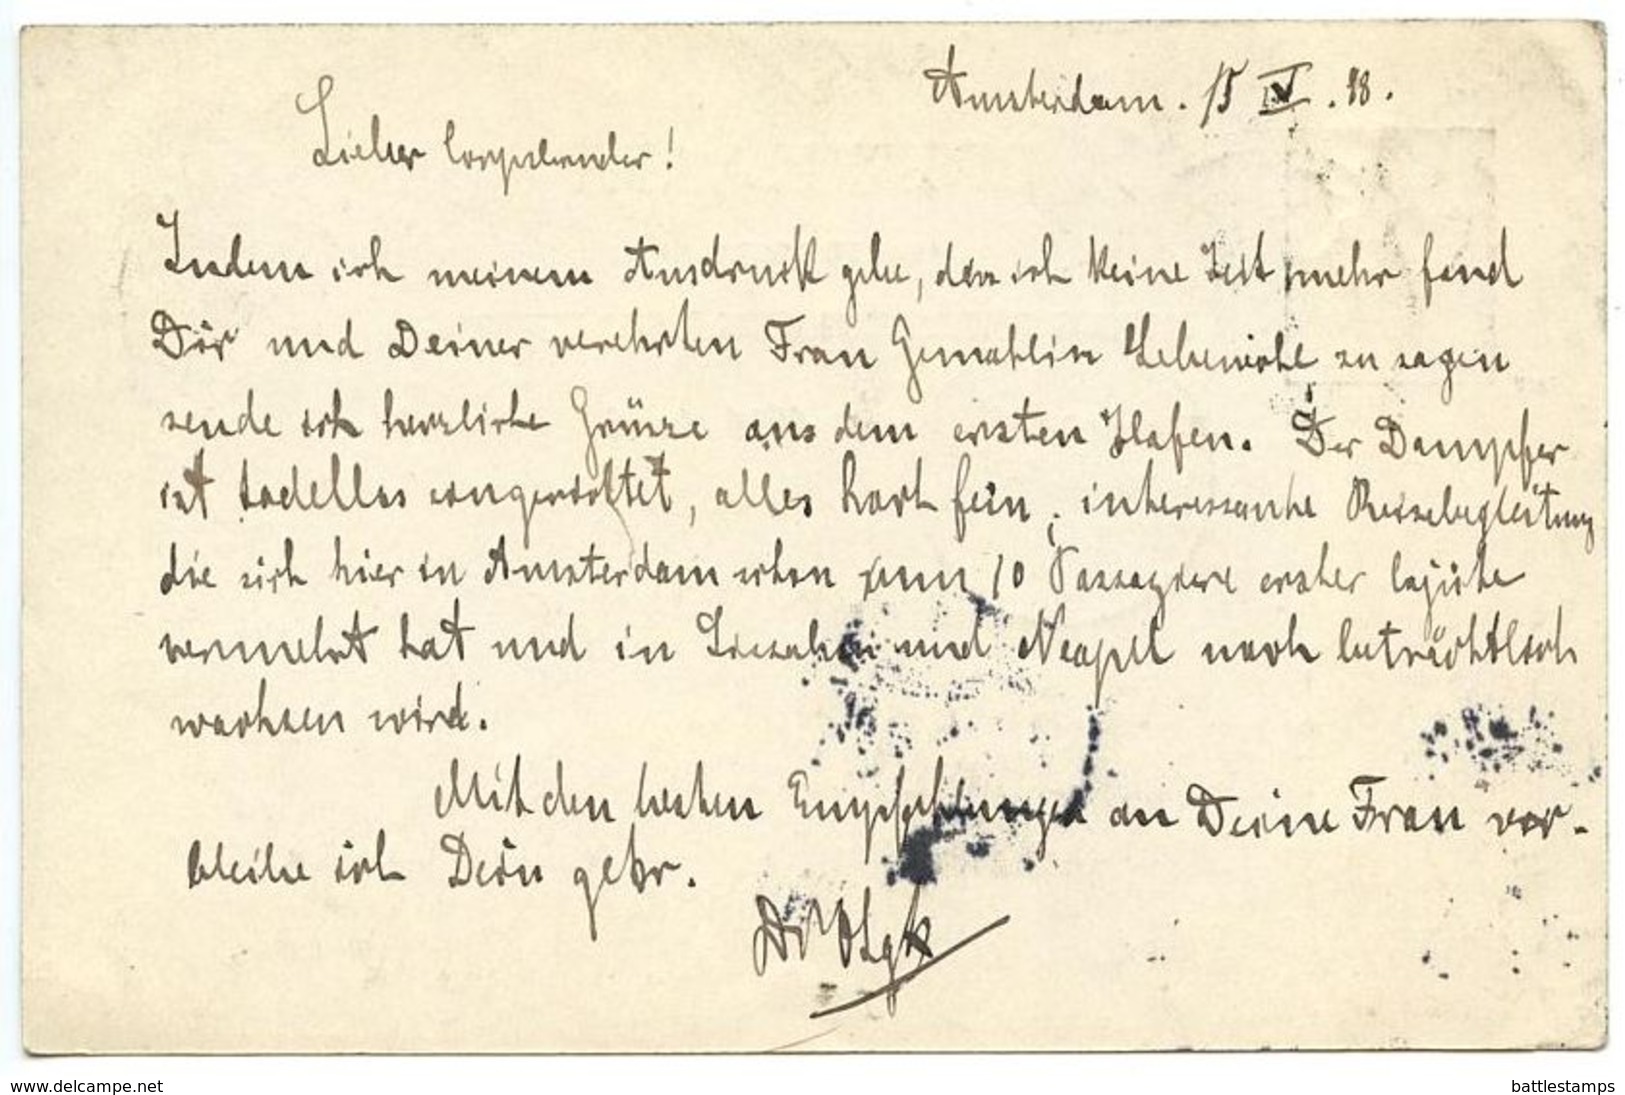 Amsterdam. 15 IV. 98.
Lieber
Indem ich meinem Ausdruck gebe, dass ich keine Zeit mehr fand
Dir und Deiner verehrten Frau Gemahlin Lebewohl zu sagen
sende ich herzliche Grüsse aus dem ersten Hafen. Der Dampfer
ist tadellos eingerichtet, alles hoch fein, interessante Reisebegleitung
die sich hier in Amsterdam schon um 10 Passagiere erster Cajüte
vermehrt hat und in und Neapel noch beträchtlich
wachsen wird.
Mit den besten Empfehlungen an Deine Frau ver-
bleibe ich Dein gebr.
www.delcampe.net
battlestamps